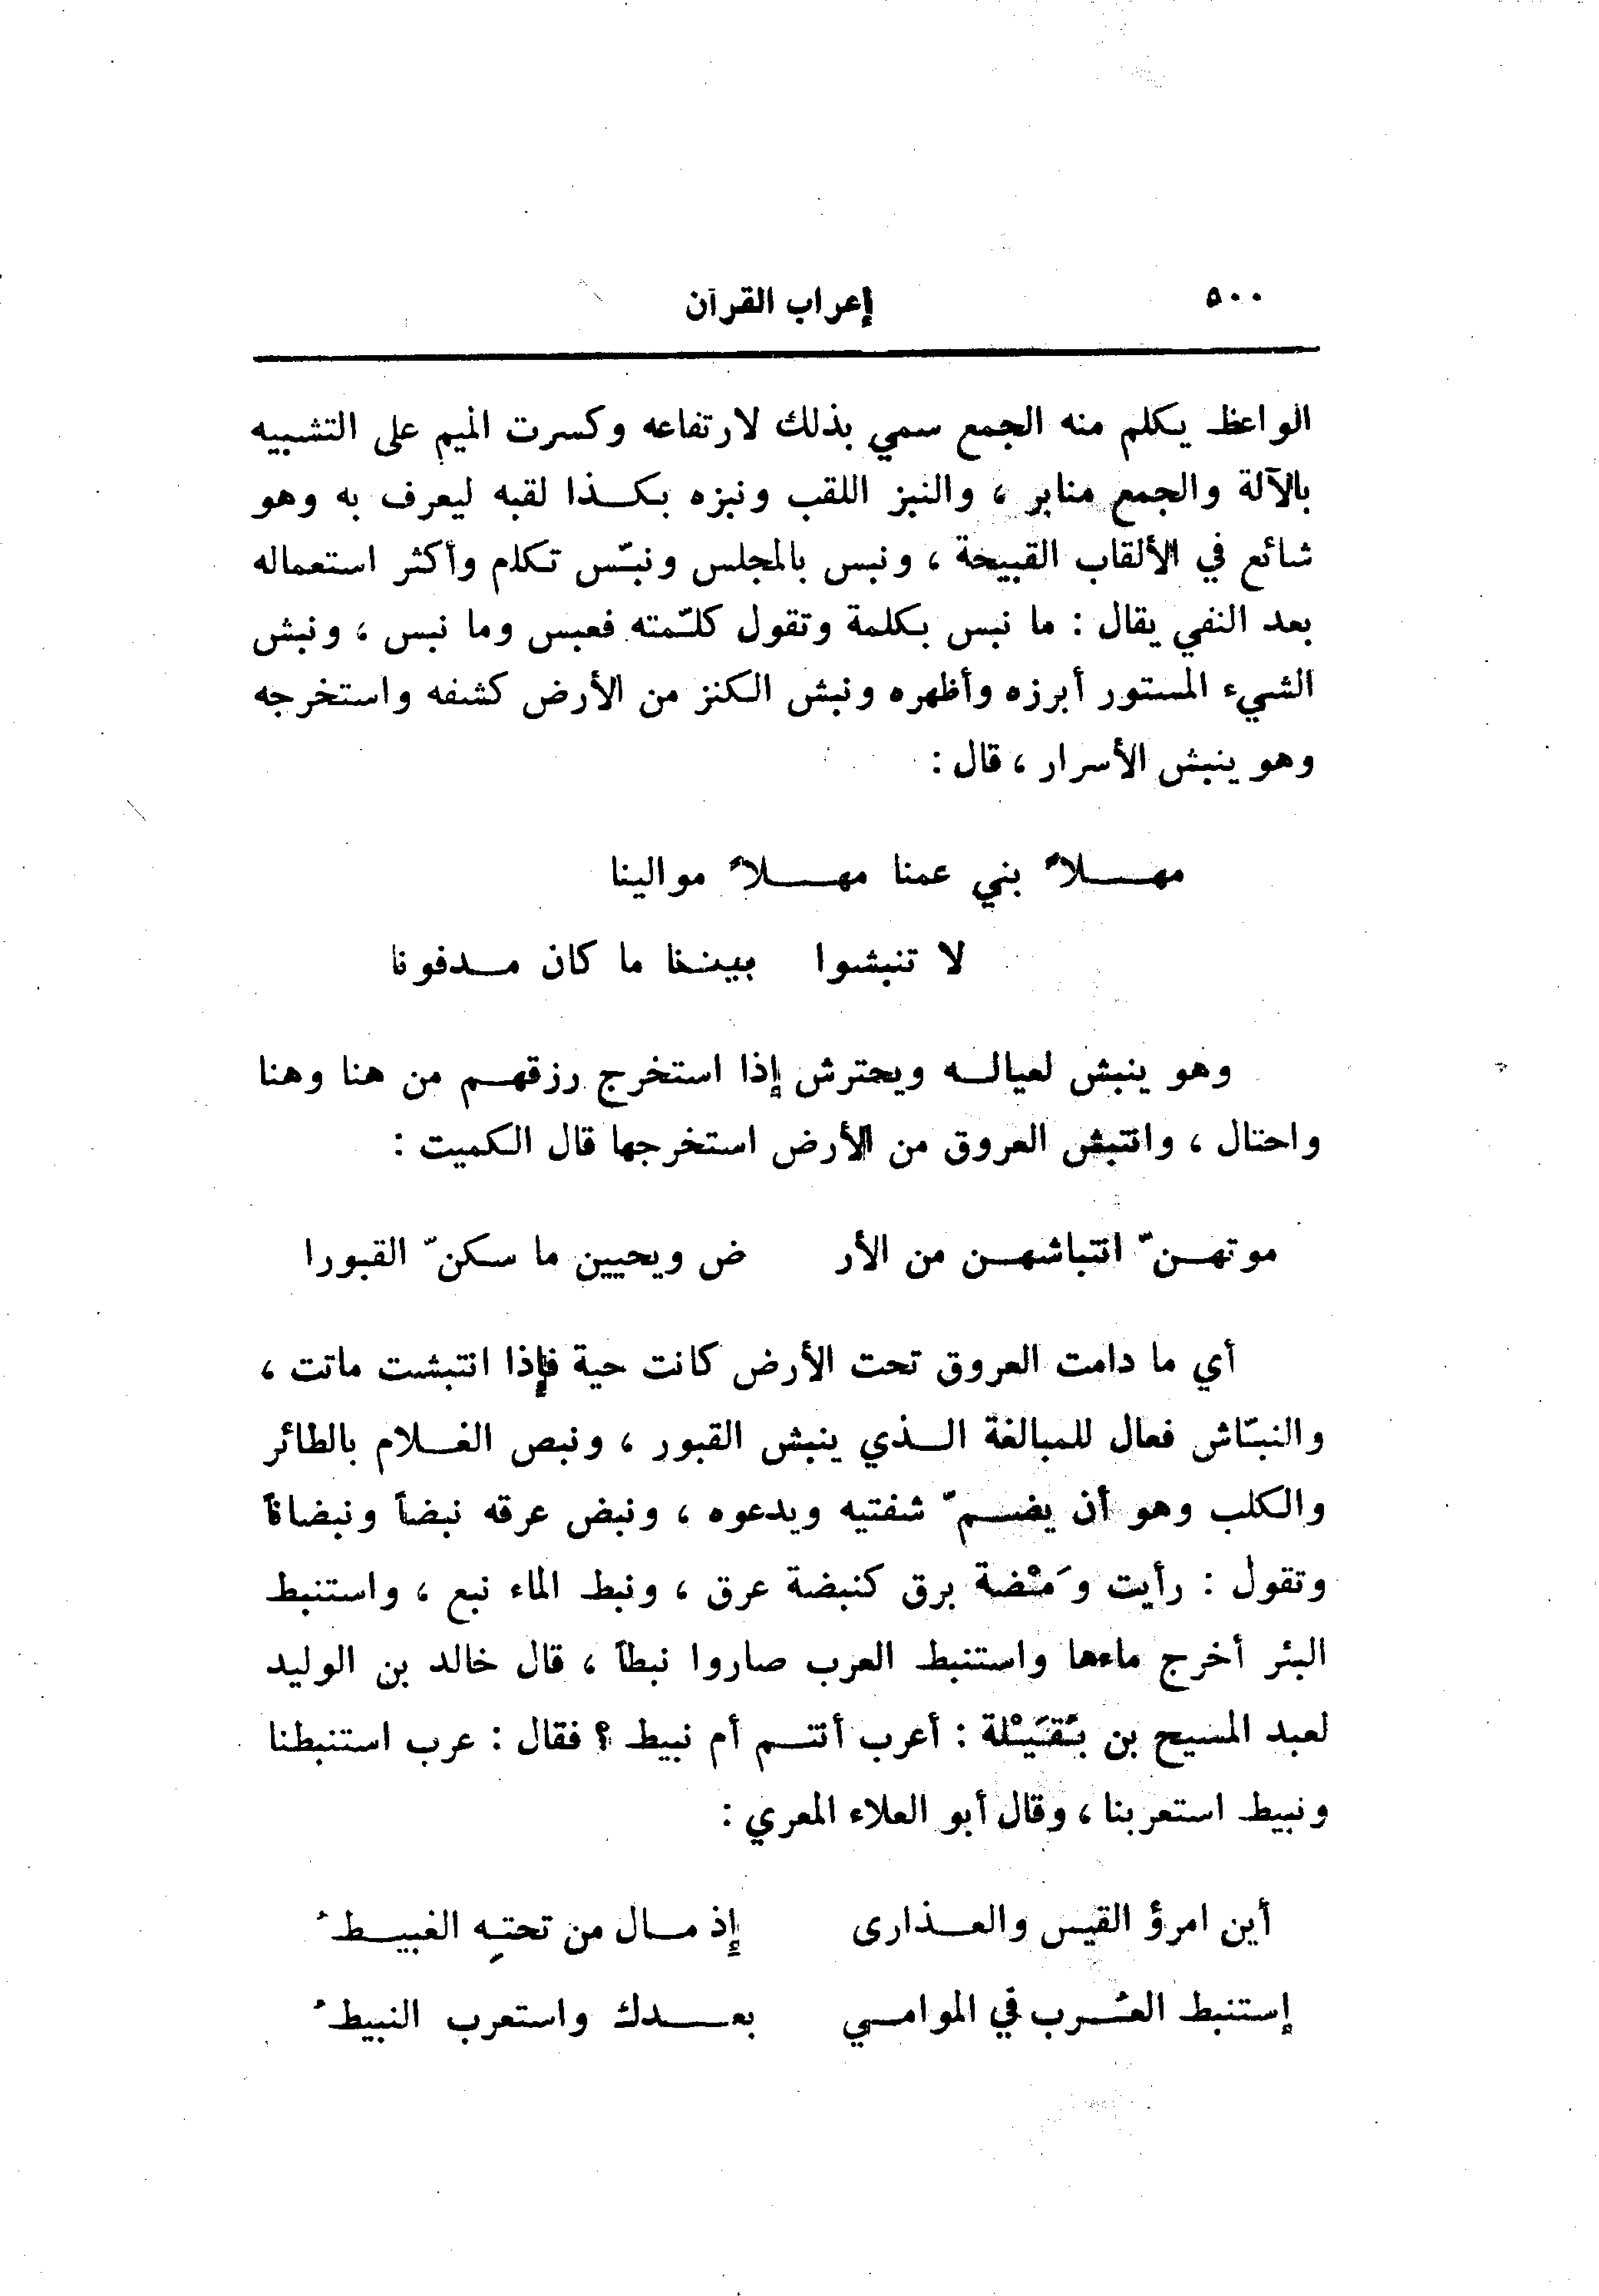 ٥٠٠ إعراب القرآن
الواعظ يكلم منه الجمع سمي بذلك لارتفاعه وكسرت الميم على التشبيه
بالآلة والجمع منابر ، والنبز اللقب ونبزه بكذا لقبه ليعرف به وهو
شائع في الألقاب القبيحة ، ونبس بالمجلس ونبّس تكلم وأكثر استعماله
بعد النفي يقال : ما نبس بكلمة وتقول كلّمته فعبس وما نبس ، ونبش
الشيء المستور أبرزه وأظهره ونبش الكنز من الأرض كشفه واستخرجه
وهو ينبش الأسرار ، قال :
مهلاً بني عمنا مهلاً موالينا
لا تنبشوا بيننا ما كان مدفونا
وهو ينبش لعياله ويحترش إذا استخرج رزقهم من هنا وهنا
واحتال ، وانتبش العروق من الأرض استخرجها قال الكميت :
موتهنّ انتباشهن من الأر ض ويحيين ما سكنّ القبورا
أي ما دامت العروق تحت الأرض كانت حية فإذا انتبشت ماتت ،
والنبّاش فعال للمبالغة الذي ينبش القبور ، ونبص الغلام بالطائر
والكلب وهو أن يضمّ شفتيه ويدعوه ، ونبض عرقه نبضاً ونبضاناً
وتقول : رأيت وَمْضة برق كنبضة عرق ، ونبط الماء نبع ، واستنبط
البئر أخرج ماءها واستنبط العرب صاروا نبطاً ، قال خالد بن الوليد
لعبد المسيح بن بُقَيْلة : أعرب أنتم أم نبيط ؟ فقال : عرب استنبطنا
ونبيط استعربنا ، وقال أبو العلاء المعري :
أين امرؤ القيس والعذارى إذ مال من تحتِه الغبيطُ
إستنبط العُرب في الموامي بعدك واستعرب النبيطُ